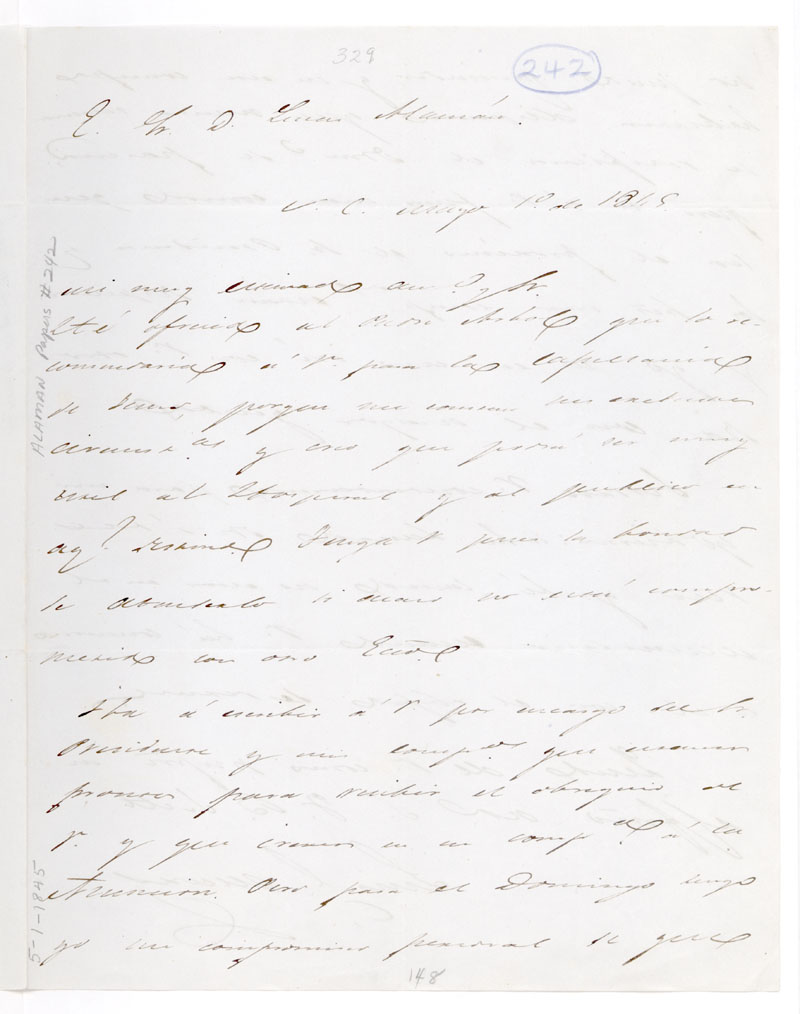 329
242
E. Sr. D. Lucas Alamán.
S. C. Mayo 1º. de 1845.
mi muy estimado am.º y Sr.
ofrecid al Padre que lo re-
comendaria á V. para la Capellania
de Jesus, porque me constan sus
circunst.as y creo que podrá ser muy
util al Hospital y al publico en
aq.l destino. Tenga V pues la bondad
de atenderlo si acaso no está compro-
metido con otro
Iba á escribir á V. por encargo del Sr.
Presidente y mis comp.os que estamos
prontos para recibir el obsequio de
V. y que iremos en su comp.a á la
Asuncion. Pero para el Domingo tengo
yo un compromiso personal de que
148
ALAMAN Papers #242
5-1-1845